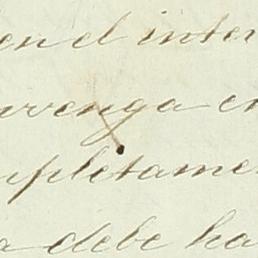 en el inter
venga en
mpletamen
a debe ha